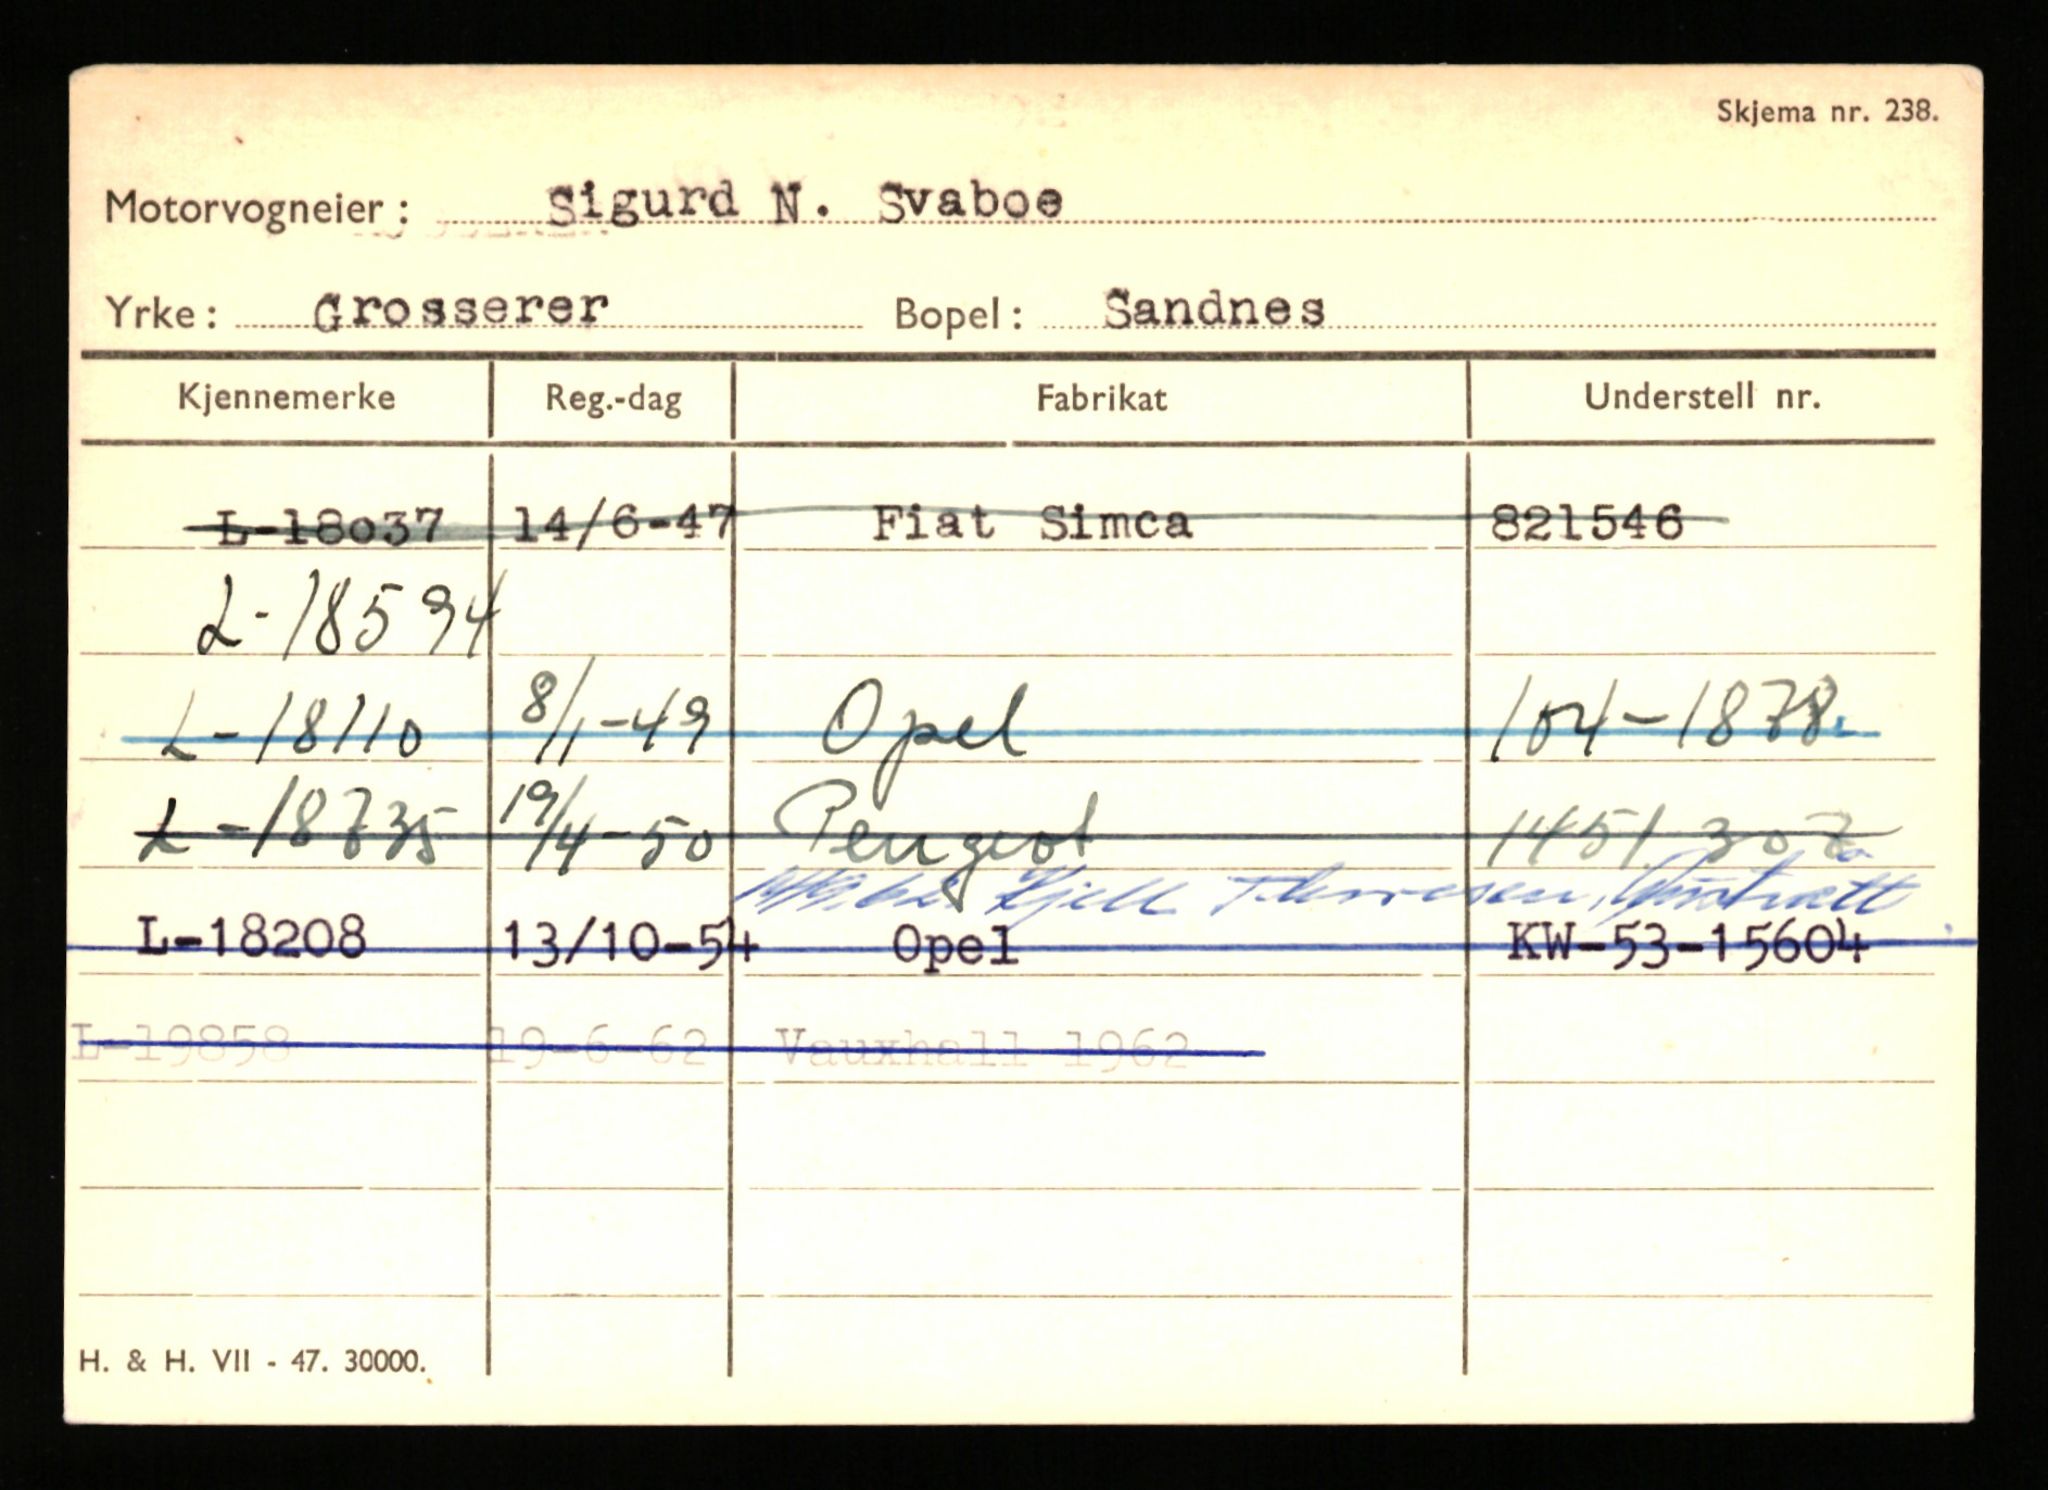 Skjema nr. 238.
Motorvogneier: Sigurd N. Svaboe
Yrke: Grosserer Bopel: Sandnes
Kjennemerke Reg.-dag Fabrikat Understell nr.
L-18037 14/6-47 Fiat Simca 821546
L-18594
L-18110 8/11-49 Opel 104-1878
L-18735 19/4-50 Peugeot 1451307
Kjell
L-18208 13/10-54 Opel KW-53-15604
L-19858 19-6-62 Vauxhall 1962
H. & H. VII - 47. 30000.